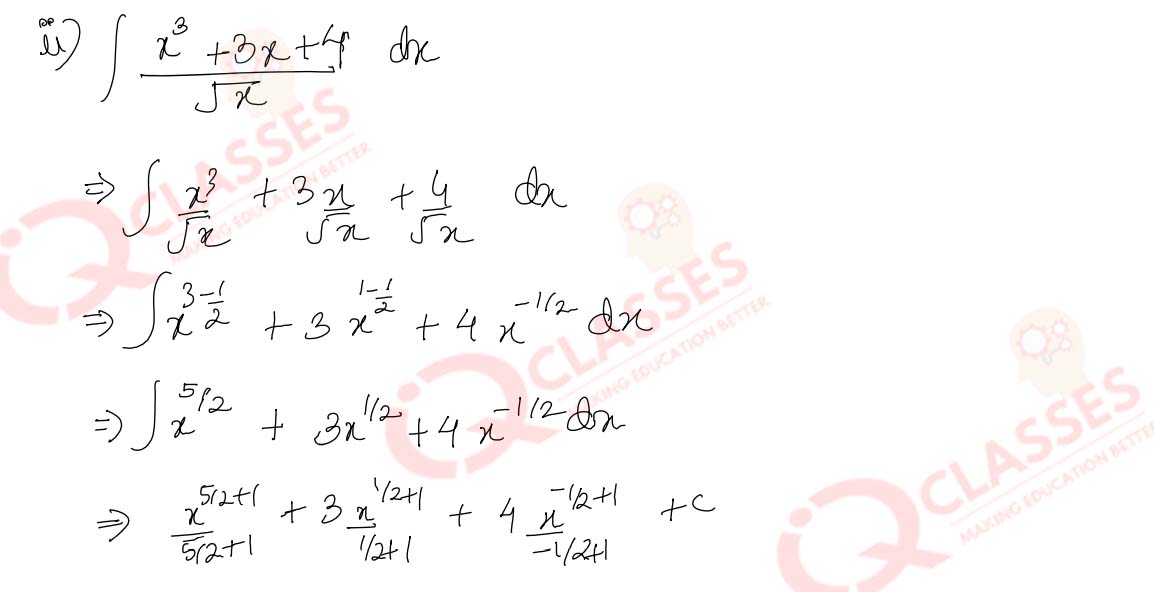 ii) ∫ (x³ + 3x + 4)/√x dx
⇒ ∫ x³/√x + 3x/√x + 4/√x dx
⇒ ∫ x^(3-1/2) + 3 x^(1-1/2) + 4 x^(-1/2) dx
⇒ ∫ x^(5/2) + 3x^(1/2) + 4 x^(-1/2) dx
⇒ x^(5/2+1)/(5/2+1) + 3 x^(1/2+1)/(1/2+1) + 4 x^(-1/2+1)/(-1/2+1) + C
iQ CLASSES
MAKING EDUCATION BETTER
iQ CLASSES
MAKING EDUCATION BETTER
iQ CLASSES
MAKING EDUCATION BETTER